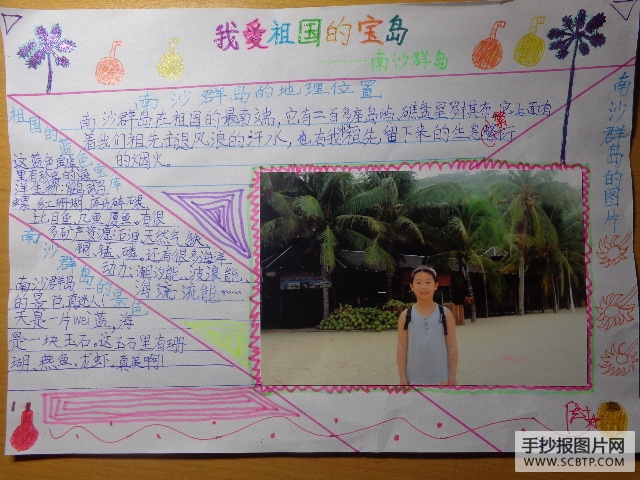 我爱祖国的宝岛
——南沙群岛
南沙群岛的地理位置
南沙群岛在祖国的最南端,它有二百多座岛屿,礁盘星罗棋布,它上面有
着我们祖先击退风浪的汗水,也有我祖先留下来的生息繁衍
的烟火。
祖国的蓝色宝库
这蓝色宝库
里有珍贵的海
洋生物:鹦鹉
螺、红珊瑚
比目鱼
多矿产资源:石油、天然气、铁、
铜、锰、磷,还有很多海洋
动力:潮汐能、波浪能、
海流能……
南沙群岛的景色
南沙群岛
的景色真迷人!
天是一片wei蓝,海
是一块玉石。这玉石里有珊
瑚、燕鱼、龙虾。真美啊!
南沙群岛的图片
手抄报图片网
WWW.SCBTP.COM